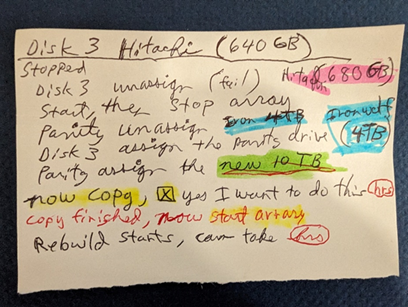 Disk 3 Hitachi (640 GB)
Stopped
Disk 3 unassign (fail) Hitachi 680 GB
Start, then stop array
Parity unassign Iron 4TB Ironwolf
Disk 3 assign the parity drive (4TB)
Parity assign the new 10 TB
now copy, ☒ yes I want to do this hrs
copy finished, now start array
Rebuild starts, can take hrs